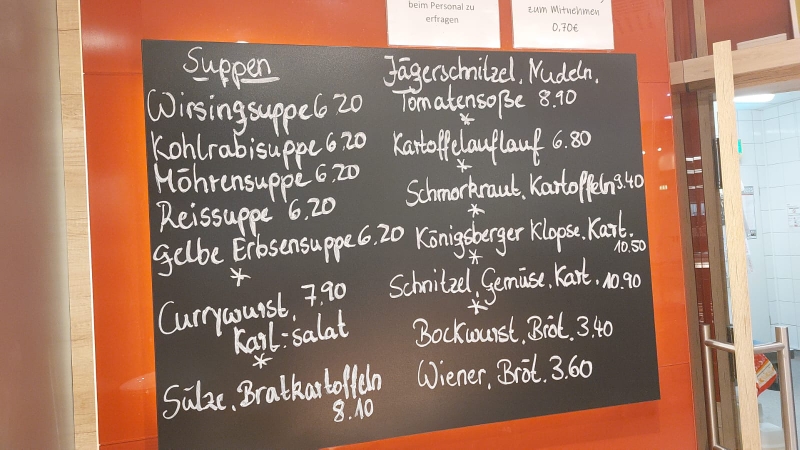 beim Personal zu
erfragen
zum Mitnehmen
0,70€
Suppen
Wirsingsuppe 6.20
Kohlrabisuppe 6.20
Möhrensuppe 6.20
Reissuppe 6.20
Gelbe Erbsensuppe 6.20
*
Currywurst, 7,90
Kart.-salat
*
Sülze, Bratkartoffeln
8.10
Jägerschnitzel, Nudeln,
Tomatensoße 8.90
*
Kartoffelauflauf 6.80
*
Schmorkraut, Kartoffeln 9.40
*
Königsberger Klopse, Kart.
10.50
*
Schnitzel, Gemüse, Kart. 10.90
*
Bockwurst, Bröt. 3.40
Wiener, Bröt. 3.60